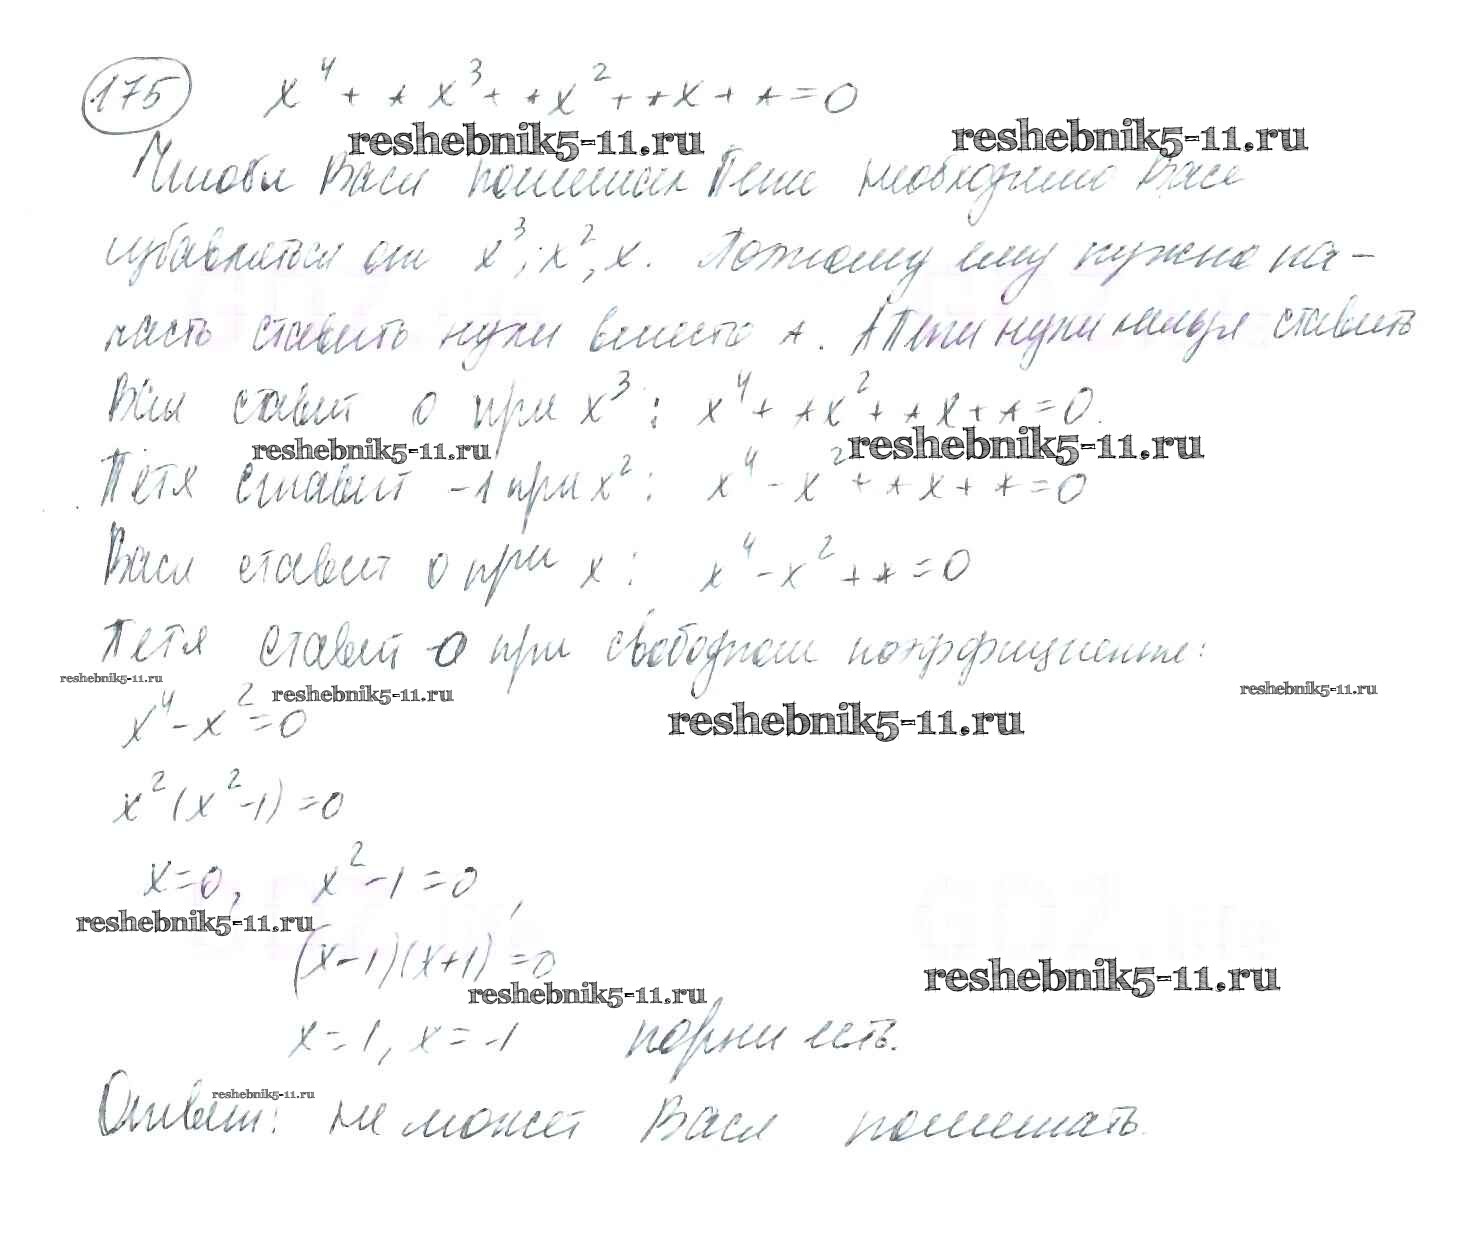 175 x⁴ + * x³ + * x² + * x + * = 0
reshebnik5-11.ru reshebnik5-11.ru
Чтобы Вася помешал Пете необходимо Васе
избавляться от x³; x², x. Поэтому ему нужно на-
чать ставить нули вместо *. А Пети нули нельзя ставить
Вася ставит 0 при x³ : x⁴ + * x² + * x + * = 0.
reshebnik5-11.ru reshebnik5-11.ru
Петя ставит -1 при x² : x⁴ - x² + * x + * = 0
Вася ставит 0 при x : x⁴ - x² + * = 0
Петя ставит 0 при свободном коэффициенте:
reshebnik5-11.ru reshebnik5-11.ru reshebnik5-11.ru
x⁴ - x² = 0 reshebnik5-11.ru
x² (x² - 1) = 0
x = 0, x² - 1 = 0,
reshebnik5-11.ru
(x - 1)(x + 1) = 0 reshebnik5-11.ru
reshebnik5-11.ru
x = 1, x = -1 корни есть.
reshebnik5-11.ru
Ответ: не может Вася помешать.